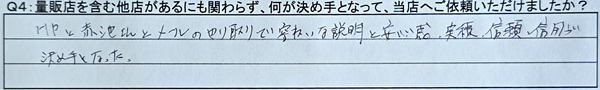 Q4:量販店を含む他店があるにも関わらず、何が決め手となって、当店へご依頼いただけましたか?
HPと赤池さんとメールのやり取りで安心な説明と安心感、実積、信頼、信用が
決め手となった。